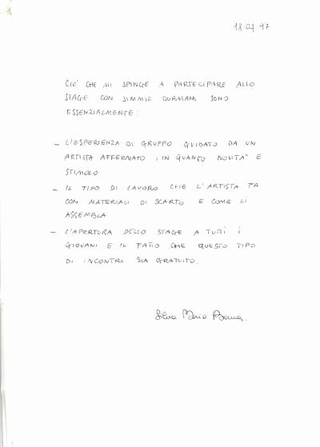 18.04.97
CIÒ CHE MI SPINGE A PARTECIPARE ALLO
STAGE CON JIMMIE DURHAM SONO
ESSENZIALMENTE:
- L'ESPERIENZA DI GRUPPO GUIDATO DA UN
ARTISTA AFFERMATO, IN QUANTO NOVITA' E
STIMOLO
- IL TIPO DI LAVORO CHE L'ARTISTA FA
CON MATERIALI DI SCARTO E COME LI
ASSEMBLA
- L'APERTURA DELLO STAGE A TUTTI I
GIOVANI E IL FATTO CHE QUESTO TIPO
DI INCONTRI SIA GRATUITO.
Maria